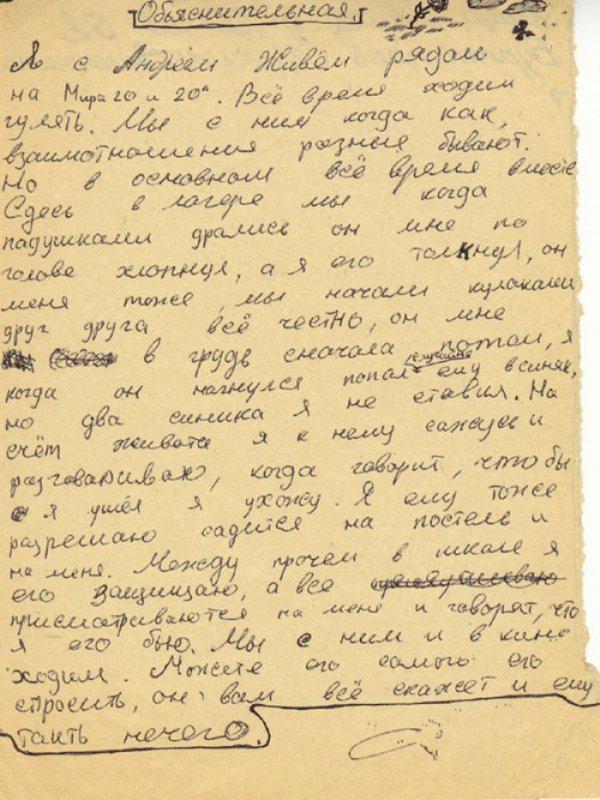 Объяснительная.
Я с Андреем живём рядом
на Мира 20 и 20а. Всё время ходим
гулять. Мы с ним когда как,
взаимотношения разные бывают.
Но в основном всё время вместе
Сдесь в лагере мы когда
падушками дрались он мне по
голове хлопнул, а я его толкнул, он
меня тоже, мы начали кулаками
друг друга всё честно, он мне
в грудь сначала потом, я
когда он нагнулся попал ему в синяк,
но два синика я не ставил. На
счёт живота я к нему сажусь и
разговариваю, когда говорит, что бы
я ушёл я ухожу. Я ему тоже
разрешаю садится на постель и
на меня. Между прочем в школе я
его защищаю, а все
присматриваются на меня и говорят, что
я его бью. Мы с ним и в кино
ходим. Можете его самого его
спросить, он вам всё скажет и ему
таить нечего.